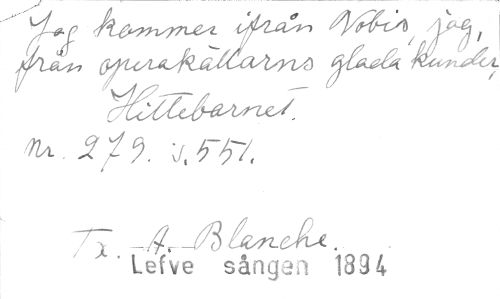 Jag kommer ifrån Nobis, jag,
från operakällarns glada kunder,
Hittebarnet.
nr. 279. s. 551.
Tx. A. Blanche.
Lefve sången 1894